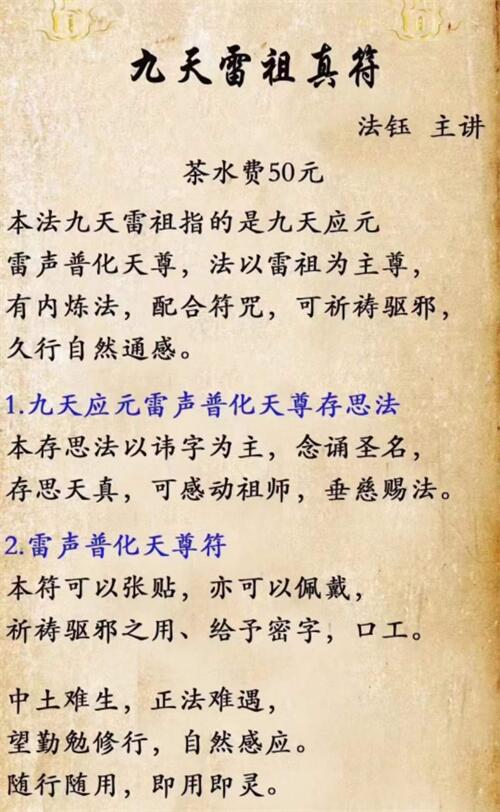 九天雷祖真符
法钰 主讲
茶水费50元
本法九天雷祖指的是九天应元
雷声普化天尊，法以雷祖为主尊，
有内炼法，配合符咒，可祈祷驱邪，
久行自然通感。
1.九天应元雷声普化天尊存思法
本存思法以讳字为主，念诵圣名，
存思天真，可感动祖师，垂慈赐法。
2.雷声普化天尊符
本符可以张贴，亦可以佩戴，
祈祷驱邪之用、给予密字，口工。
中土难生，正法难遇，
望勤勉修行，自然感应。
随行随用，即用即灵。